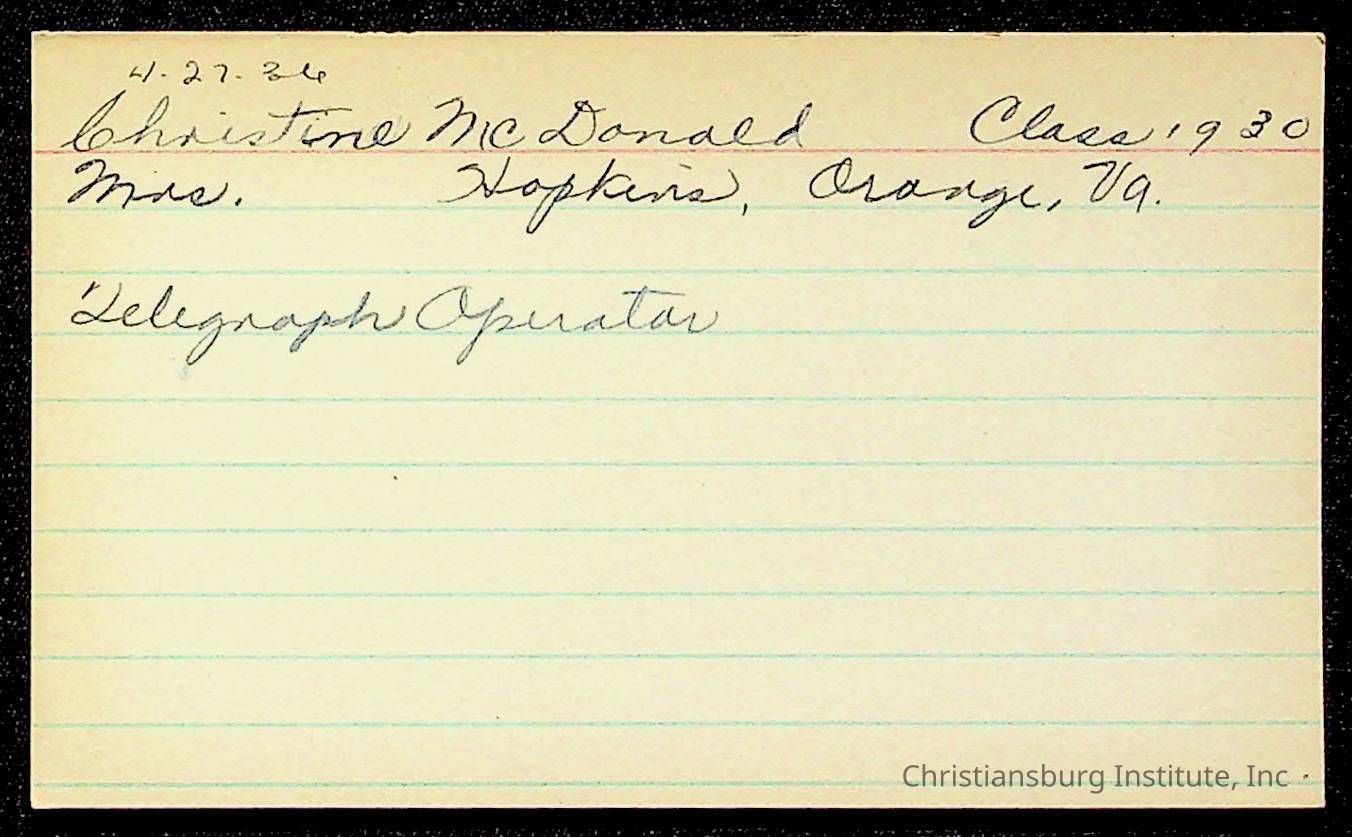 4. 27. 36
Christine McDonald Class 1930
Mrs. Hopkins, Orange, Va.
Telegraph Operator
Christiansburg Institute, Inc